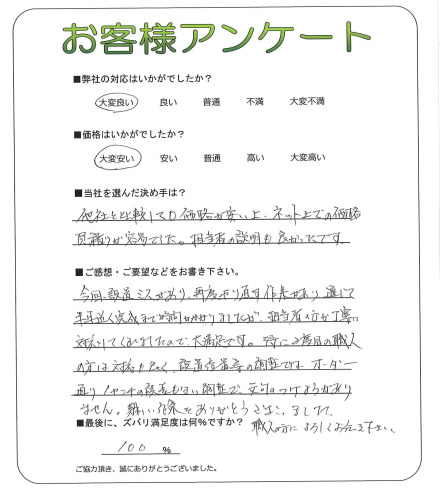 お客様アンケート
■弊社の対応はいかがでしたか？
大変良い 良い 普通 不満 大変不満
■価格はいかがでしたか？
大変安い 安い 普通 高い 大変高い
■当社を選んだ決め手は？
他社と比較しても価格が安い上、ネット上での価格
見積りが容易でした。担当者の説明も良かったです。
■ご感想・ご要望などをお書き下さい。
今回、製造ミスがあり、再度やり直す作業があり、通じて
半年近く完成まで時間がかかりましたが、担当者の方が丁寧に
対応してくれましたので、大満足です。特に2度目の職人
の方は対応も良く、の調整ですね オーダー
通り 1ヶンチの誤差もない調整で、文句のつけようがあり
ません。難しい作業をありがとうございました。
■最後に、ズバリ満足度は何%ですか？
職人の方に よろしくお伝え下さい。
100 %
ご協力頂き、誠にありがとうございました。